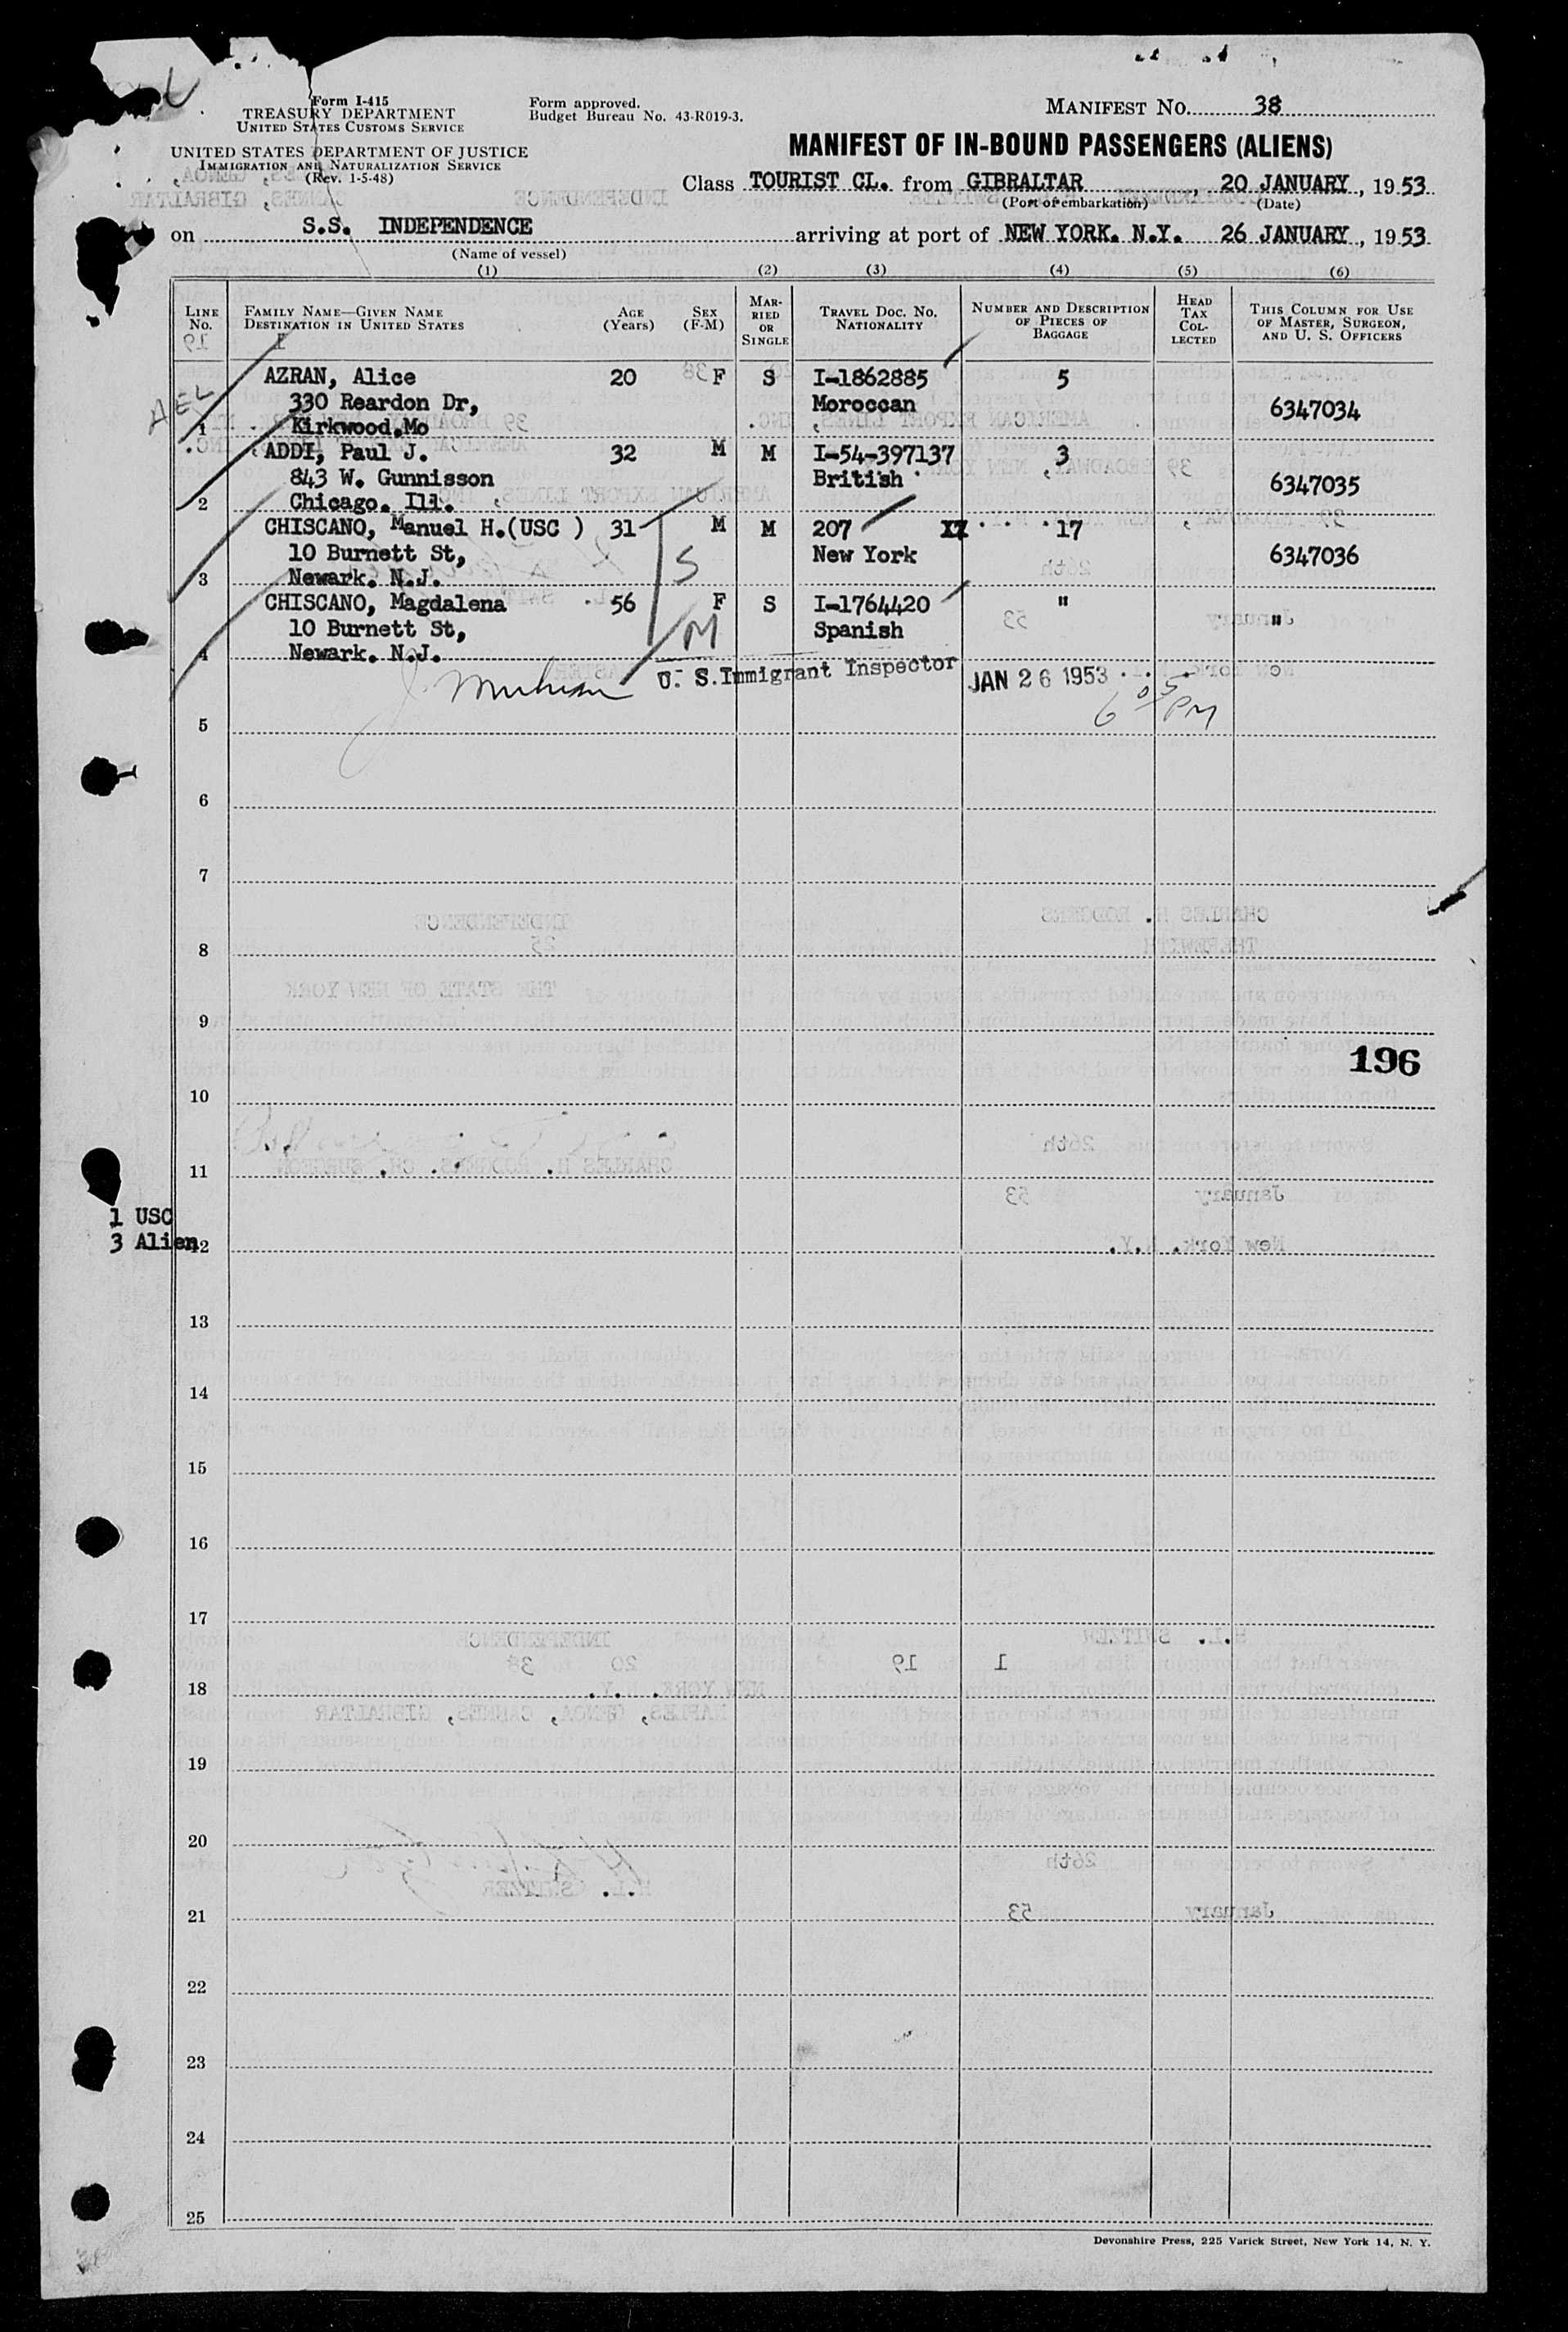 Form I-415
TREASURY DEPARTMENT
UNITED STATES CUSTOMS SERVICE
UNITED STATES DEPARTMENT OF JUSTICE
IMMIGRATION AND NATURALIZATION SERVICE
(Rev. 1-5-48)
Form approved.
Budget Bureau No. 43-R019-3.
MANIFEST NO. 38
MANIFEST OF IN-BOUND PASSENGERS (ALIENS)
Class TOURIST CL. from GIBRALTAR, 20 JANUARY, 1953
(Port of embarkation) (Date)
on S.S. INDEPENDENCE arriving at port of NEW YORK. N.Y. 26 JANUARY, 1953
(Name of vessel)
(1) (2) (3) (4) (5) (6)
LINE No.
FAMILY NAME—GIVEN NAME
DESTINATION IN UNITED STATES
AGE (Years)
SEX (F-M)
MARRIED OR SINGLE
TRAVEL DOC. NO.
NATIONALITY
NUMBER AND DESCRIPTION OF PIECES OF BAGGAGE
HEAD TAX COLLECTED
THIS COLUMN FOR USE OF MASTER, SURGEON, AND U. S. OFFICERS
AZRAN, Alice 20 F S I-1862885 5
330 Reardon Dr, Moroccan 6347034
1 Kirkwood.Mo
ADDI, Paul J. 32 M M I-54-397137 3
843 W. Gunnisson British 6347035
2 Chicago. Ill.
CHISCANO, Manuel H.(USC ) 31 M M 207 17
10 Burnett St, New York 6347036
3 Newark. N.J. S
CHISCANO, Magdalena 56 F S I-1764420 "
10 Burnett St, Spanish "
4 Newark. N.J. M
U. S. Immigrant Inspector JAN 26 1953
6 05 PM
5
6
7
8
9
196
10
11
1 USC
3 Alien
12
13
14
15
16
17
18
19
20
21
22
23
24
25
Devonshire Press, 225 Varick Street, New York 14, N. Y.